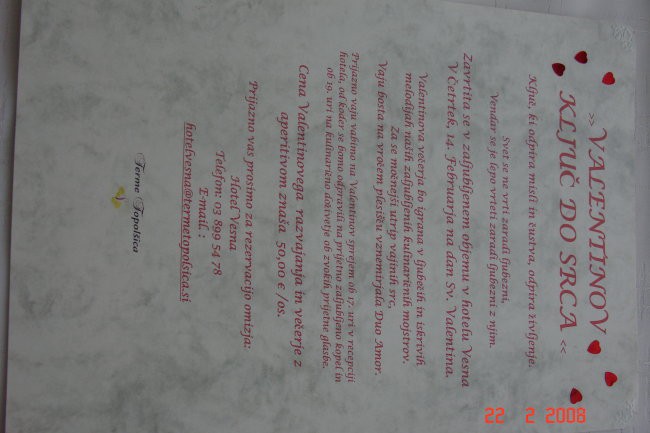 »VALENTINOV
KLJUČ DO SRCA«
Ključ, ki odpira misli in čustva, odpira življenje.
Svet se ne vrti zaradi ljubezni,
Vendar se je lepo vrteti zaradi ljubezni z njim.
Zavrtita se v zaljubljenem objemu v hotelu Vesna
V Četrtek, 14. Februarja na dan Sv. Valentina.
Valentinova večerja bo igrana v ljubečih in iskrivih
melodijah naših zaljubljenih kulinaričnih mojstrov.
Za še močnejši utrip vajinih src,
Vaju bosta na vročem plesišču vznemirjala Duo Amor.
Prijazno vaju vabimo na Valentinov sprejem ob 17. uri v recepciji
hotela, od koder se bomo odpravili na prijetno zaljubljeno kopel in
ob 19. uri na kulinarično doživetje ob zvokih prijetne glasbe.
Cena Valentinovega razvajanja in večerje z
aperitivom znaša 50,00 € /os.
Prijazno vas prosimo za rezervacijo omizja:
Hotel Vesna
Telefon: 03 899 54 78
E-mail. :
hotelvesna@termetopolsica.si
Terme Topolšica
22 2 2008